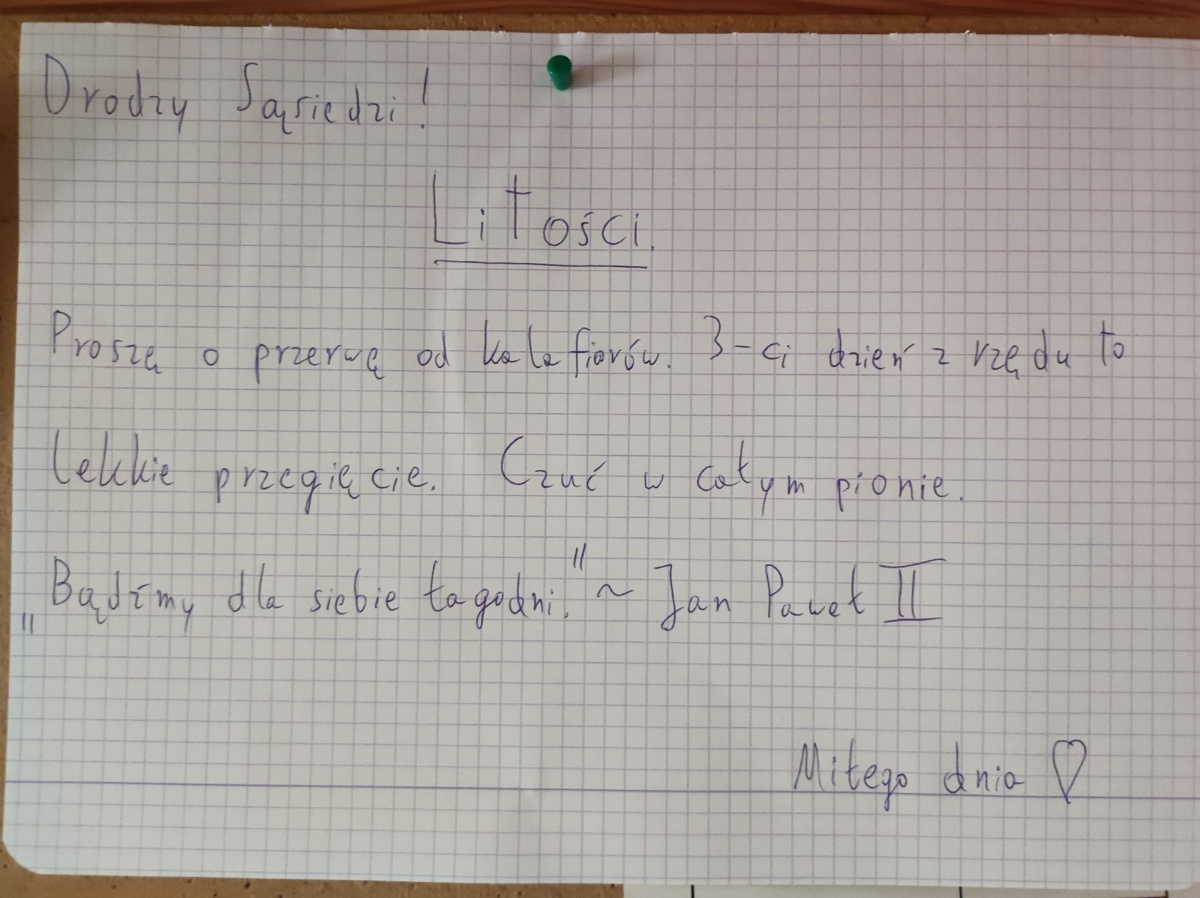 Drodzy Sąsiedzi!
Litości.
Proszę o przerwę od kalafiorów. 3-ci dzień z rzędu to
lekkie przegięcie. Czuć w całym pionie.
„Bądźmy dla siebie łagodni." ~ Jan Paweł II
Miłego dnia ♡